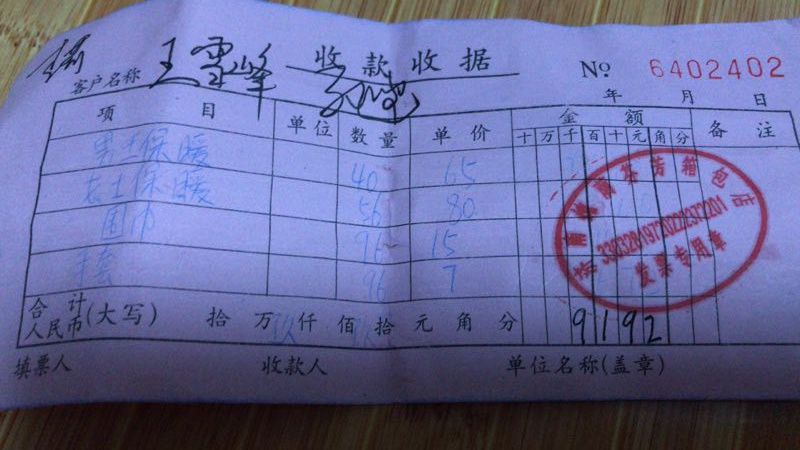 收款收据
No 6402402
客户名称 王雪峰
年 月 日
项目 单位 数量 单价 金额 备注
十 万 千 百 十 元 角 分
男士保暖 40 65
女士保暖 56 80
围巾 96 15
手套 96 7
发票专用章
合计人民币(大写) 拾 万 玖 仟 佰 玖 拾 元 角 分 9192
填票人 收款人 单位名称(盖章)